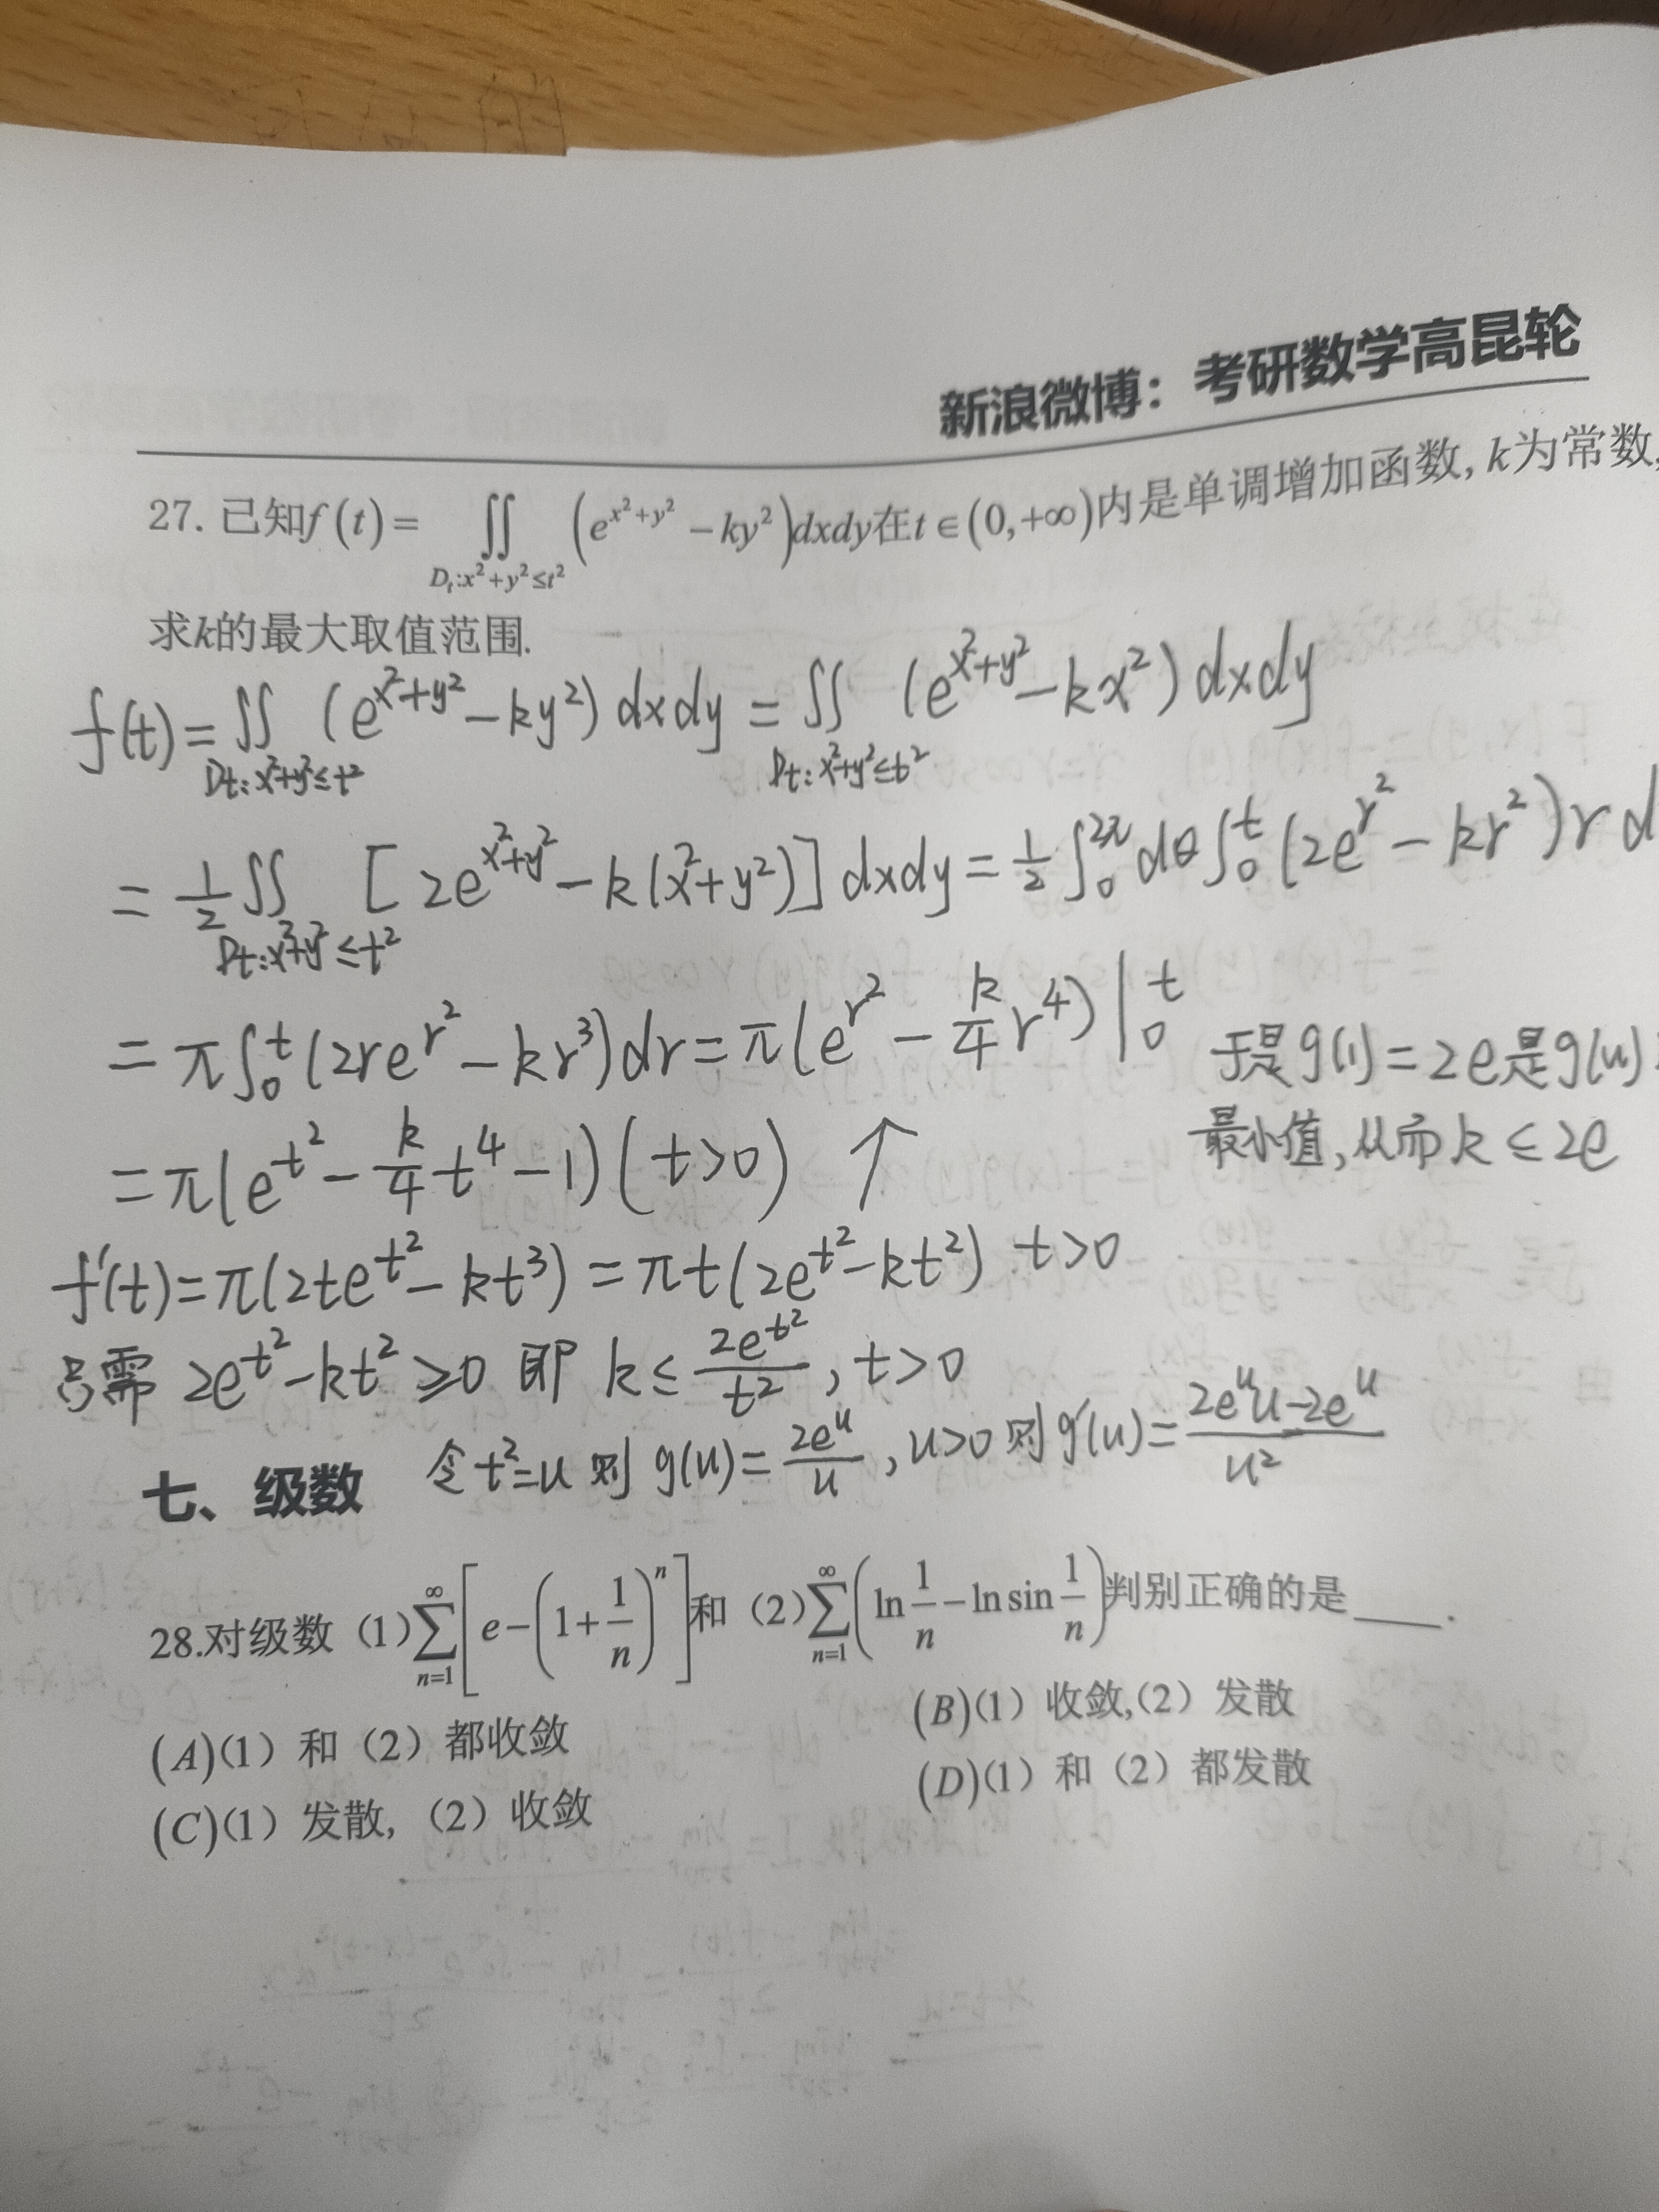 新浪微博：考研数学高昆轮
27. 已知f(t)=∬_{D_t:x²+y²≤t²}(e^{x²+y²}-ky²)dxdy在t∈(0,+∞)内是单调增加函数, k为常数,
求k的最大取值范围.
f(t)=∬_{Dt:x²+y²≤t²}(e^{x²+y²}-ky²)dxdy=∬_{Dt:x²+y²≤t²}(e^{x²+y²}-kx²)dxdy
=1/2∬_{Dt:x²+y²≤t²}[2e^{x²+y²}-k(x²+y²)]dxdy=1/2∫_0^{2π}dθ∫_0^t(2e^{r²}-kr²)r d
=π∫_0^t(2re^{r²}-kr³)dr=π(e^{r²}-k/4 r⁴)|_0^t
=π(e^{t²}-k/4 t⁴-1)(t>0) ↑
f'(t)=π(2te^{t²}-kt³)=πt(2e^{t²}-kt²) t>0
只需 2e^{t²}-kt²≥0 即 k≤2e^{t²}/t², t>0
令t²=u 则 g(u)=2e^u/u, u>0 则 g'(u)=(2e^u u-2e^u)/u²
于是g(1)=2e是g(u)
最小值,从而k≤2e
七、级数
28.对级数（1）∑_{n=1}^{∞}[e-(1+1/n)^n]和（2）∑_{n=1}^{∞}(ln 1/n-ln sin 1/n)判别正确的是____.
(A)(1）和（2）都收敛
(B)(1）收敛,(2）发散
(C)(1）发散,（2）收敛
(D)(1）和（2）都发散